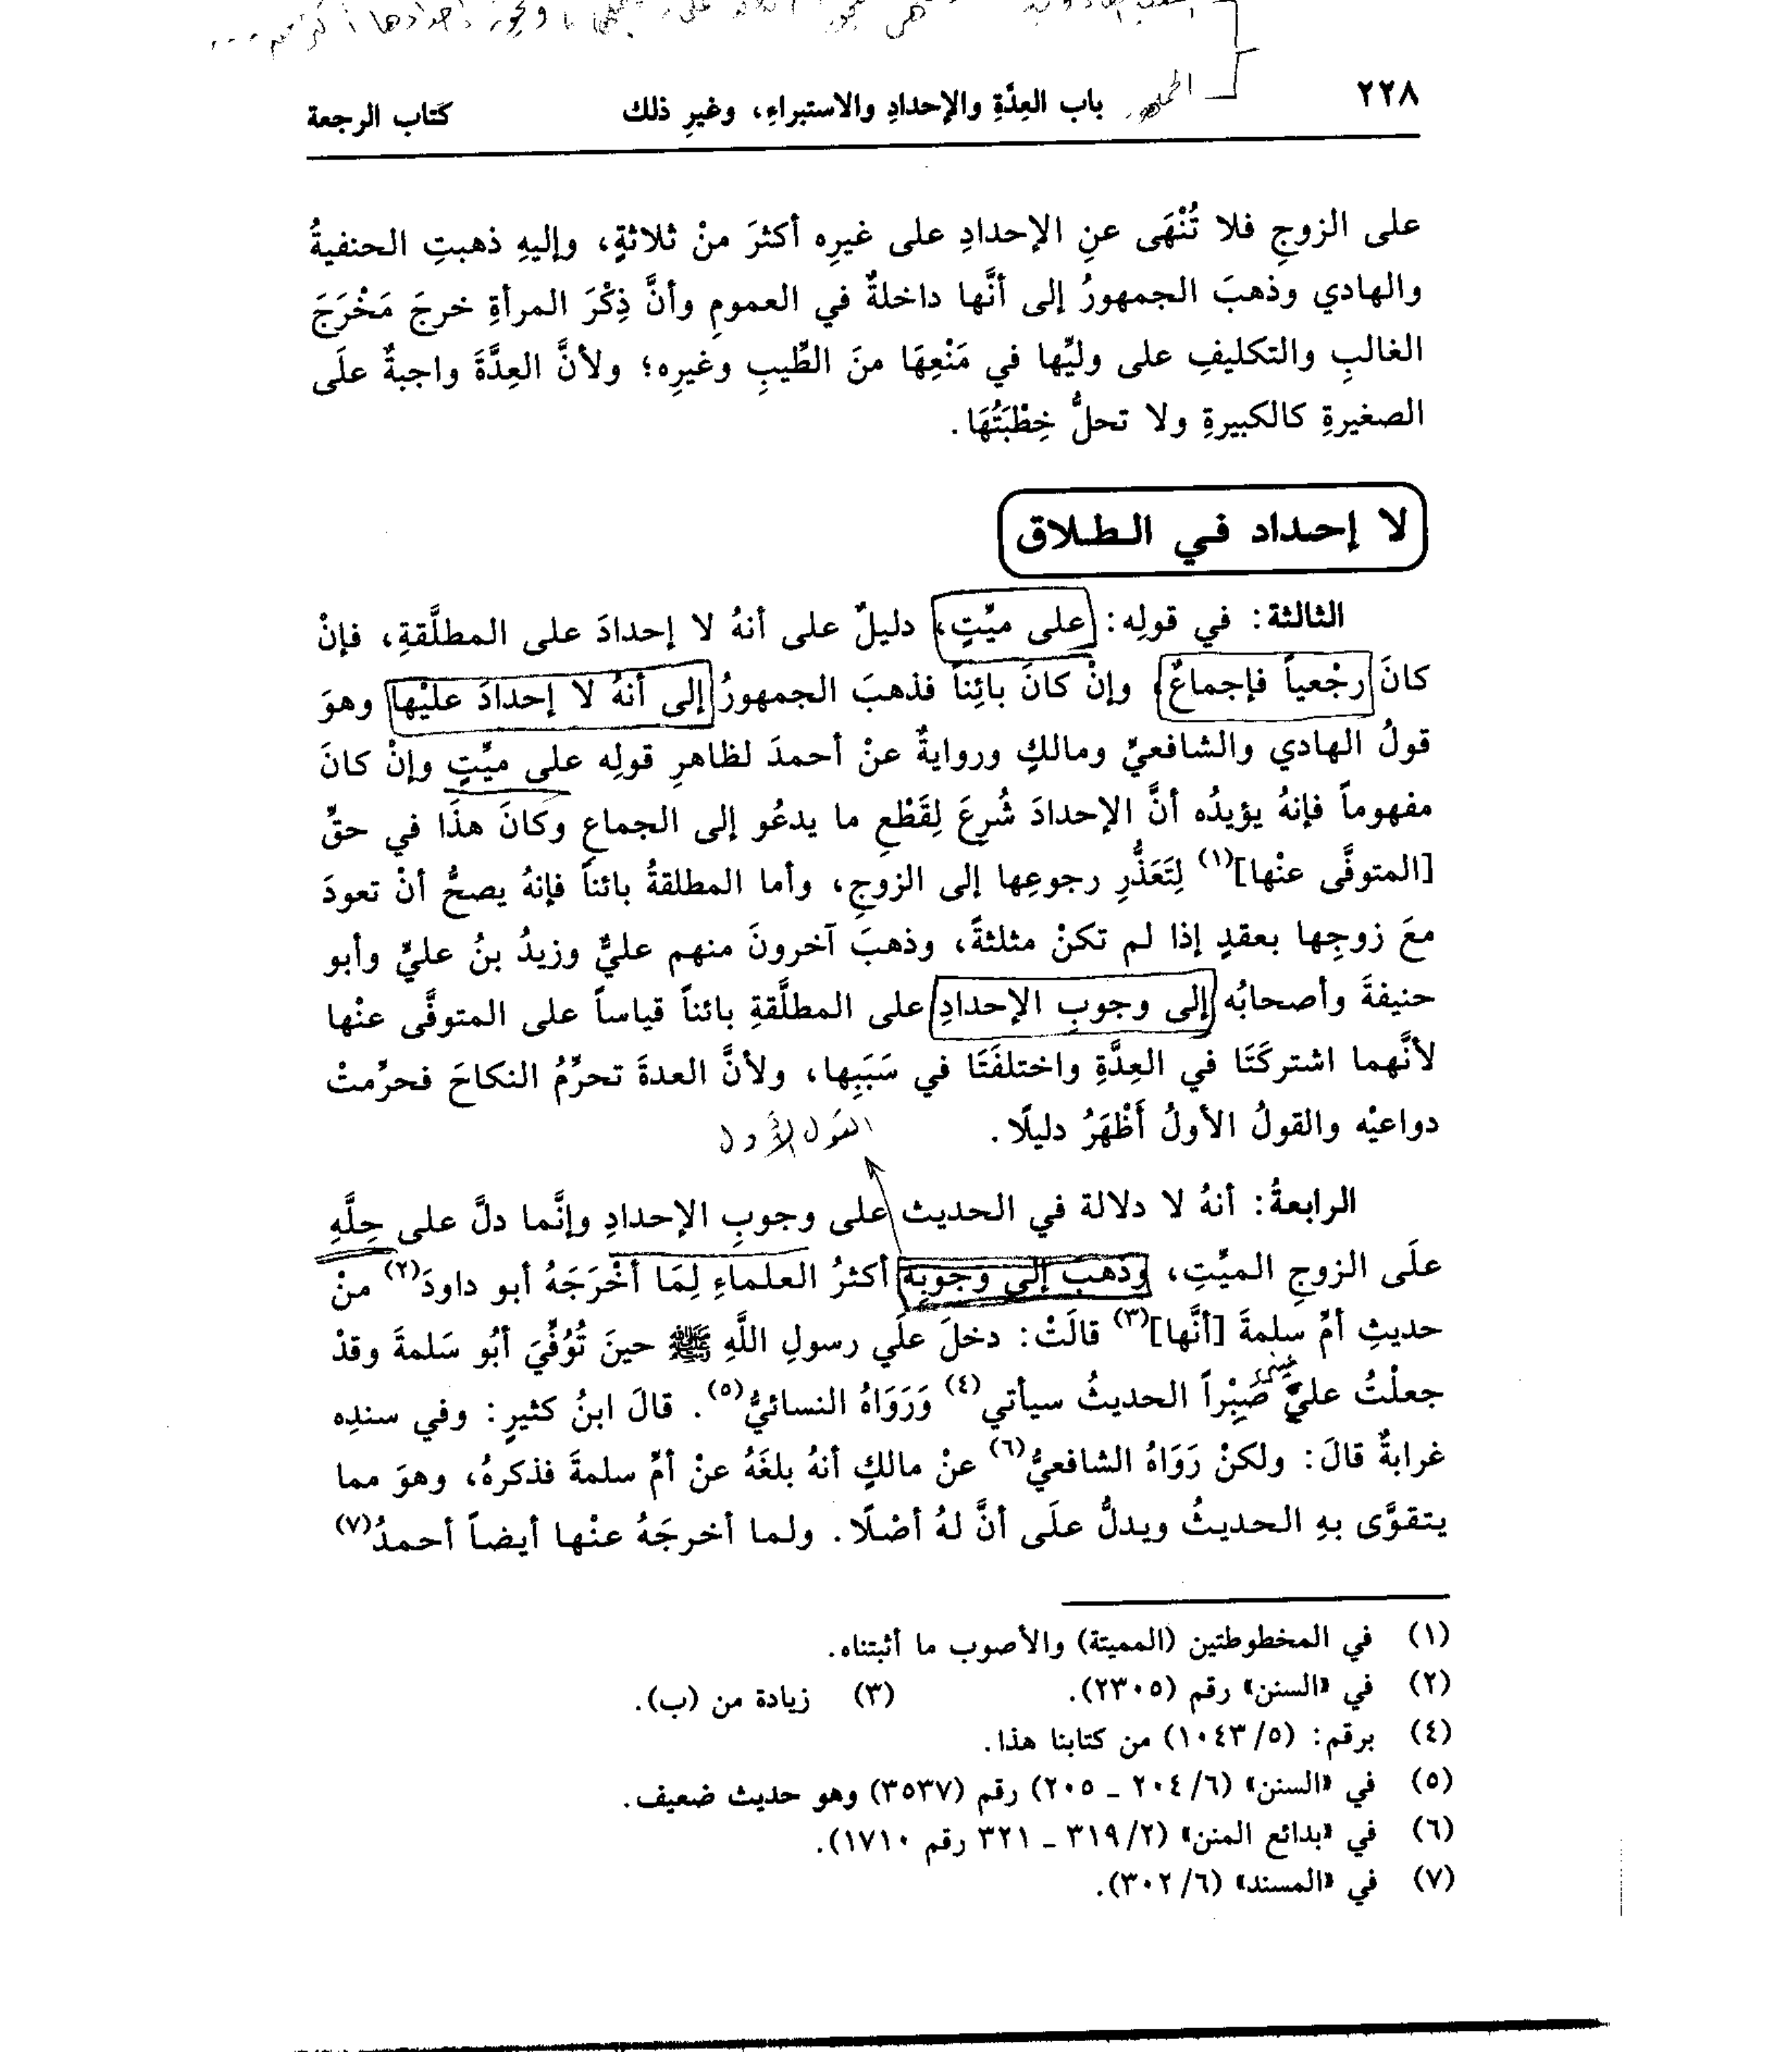 ٢٢٨ باب العِدَّةِ والإحدادِ والاستبراءِ، وغيرِ ذلك كتاب الرجعة
على الزوجِ فلا تُنْهَى عنِ الإحدادِ على غيرِه أكثرَ منْ ثلاثةٍ، وإليهِ ذهبتِ الحنفيةُ
والهادي وذهبَ الجمهورُ إلى أنَّها داخلةٌ في العمومِ وأنَّ ذِكْرَ المرأةِ خرجَ مَخْرَجَ
الغالبِ والتكليفِ على وليِّها في مَنْعِهَا منَ الطِّيبِ وغيرِه؛ ولأنَّ العِدَّةَ واجبةٌ علَى
الصغيرةِ كالكبيرةِ ولا تحلُّ خِطْبَتُهَا.
لا إحداد في الطلاق
الثالثة: في قولِه: على ميِّتٍ، دليلٌ على أنهُ لا إحدادَ على المطلَّقةِ، فإنْ
كانَ رجْعياً فإجماعٌ، وإنْ كانَ بائِناً فذهبَ الجمهورُ إلى أنهُ لا إحدادَ عليْها وهوَ
قولُ الهادي والشافعيِّ ومالكٍ وروايةٌ عنْ أحمدَ لظاهرِ قولِه على ميِّتٍ وإنْ كانَ
مفهوماً فإنهُ يؤيدُه أنَّ الإحدادَ شُرِعَ لِقَطْعِ ما يدعُو إلى الجماعِ وكانَ هذَا في حقِّ
[المتوفَّى عنْها](١) لِتَعَذُّرِ رجوعِها إلى الزوجِ، وأما المطلقةُ بائناً فإنهُ يصحُّ أنْ تعودَ
معَ زوجِها بعقدٍ إذا لم تكنْ مثلثةً، وذهبَ آخرونَ منهم عليٌّ وزيدُ بنُ عليٍّ وأبو
حنيفةَ وأصحابُه إلى وجوبِ الإحدادِ على المطلَّقةِ بائناً قياساً على المتوفَّى عنْها
لأنَّهما اشتركَتَا في العِدَّةِ واختلفَتَا في سَبَبِها، ولأنَّ العدةَ تحرِّمُ النكاحَ فحرِّمتْ
دواعيْه والقولُ الأولُ أَظْهَرُ دليلًا. القول الأول
الرابعةُ: أنهُ لا دلالة في الحديث على وجوبِ الإحدادِ وإنَّما دلَّ على حِلَّهِ
علَى الزوجِ الميِّتِ، وذهبَ إلى وجوبِهِ أكثرُ العلماءِ لِمَا أخْرَجَهُ أبو داودَ(٢) منْ
حديثِ أمِّ سلمةَ [أنَّها](٣) قالَتْ: دخلَ علَي رسولِ اللَّهِ ﷺ حينَ تُوُفِّيَ أبُو سَلمةَ وقدْ
جعلْتُ عليَّ صَبِرْاً الحديثُ سيأتي(٤) وَرَوَاهُ النسائيُّ(٥). قالَ ابنُ كثيرٍ: وفي سندِه
غرابةٌ قالَ: ولكنْ رَوَاهُ الشافعيُّ(٦) عنْ مالكٍ أنهُ بلغَهُ عنْ أمِّ سلمةَ فذكرهُ، وهوَ مما
يتقوَّى بهِ الحديثُ ويدلُّ علَى أنَّ لهُ أصْلًا. ولما أخرجَهُ عنْها أيضاً أحمدُ(٧)
(١) في المخطوطتين (المميتة) والأصوب ما أثبتناه.
(٢) في «السنن» رقم (٢٣٠٥). (٣) زيادة من (ب).
(٤) برقم: (١٠٤٣/٥) من كتابنا هذا.
(٥) في «السنن» (٢٠٤/٦ ـ ٢٠٥) رقم (٣٥٣٧) وهو حديث ضعيف.
(٦) في «بدائع المنن» (٣١٩/٢ ـ ٣٢١ رقم ١٧١٠).
(٧) في «المسند» (٣٠٢/٦).